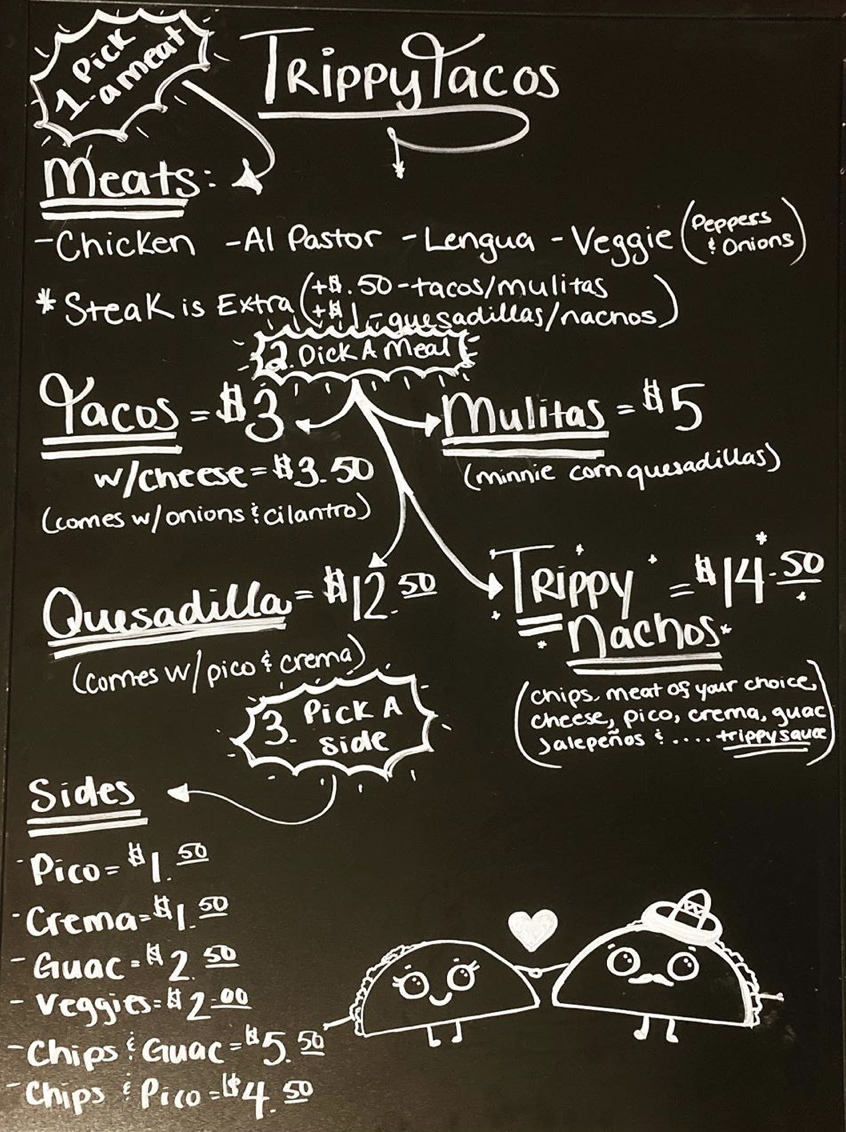 1. Pick
a meat
Trippy Tacos
Meats:
-Chicken -Al Pastor -Lengua -Veggie (Peppers & Onions)
* Steak is Extra (+$.50-tacos/mulitas
+$1-quesadillas/nachos)
2. Pick A Meal
Tacos = $3
w/cheese = $3.50
(comes w/onions & cilantro)
Mulitas = $5
(minnie corn quesadillas)
Quesadilla = $12.50
(comes w/pico & crema)
Trippy = $14.50
Nachos
(chips, meat of your choice,
cheese, pico, crema, guac
Jalepeños & .... trippy sauce)
3. Pick A
side
Sides
-Pico = $1.50
-Crema = $1.50
-Guac = $2.50
-Veggies = $2.00
-Chips & Guac = $5.50
-Chips & Pico = $4.50